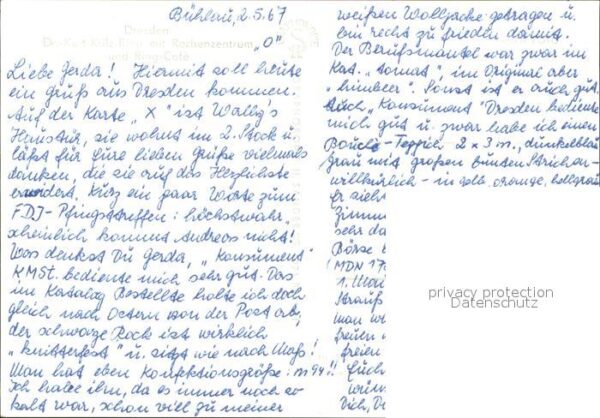 Bühlau, 2.5.67
Dresden
Dr.-Kurt- Rechenzentrum
"O"
Liebe Gerda! Hiermit soll heute
ein Gruß aus Dresden kommen.
Auf der Karte "X" ist Wally's
Haustür, sie wohnt im 2. Stock u.
läßt für Eure lieben Grüße vielmals
danken, die sie auf das Herzlichste
erwidert. Kurz ein paar Worte zum
FDJ-Pfingsttreffen: höchstwahr-
scheinlich kommt Andreas nicht!
Was denkst Du Gerda, "Konsument"
KMSt. bediente mich sehr gut. Das
im Katalog Bestellte holte ich doch
gleich nach Ostern von der Post ab,
der schwarze Rock ist wirklich
"knitterfest" u. sitzt wie nach Maß!
Man hat eben Konfektionsgröße: m94!!
Ich habe ihn, da es immer noch so
kalt war, schon viel zu meiner
weißen Wolljacke getragen u.
bin recht zufrieden damit.
Der Berufsmantel war zwar im
Kat. "tomat", im Original aber
"himbeer". Sonst ist er auch gut.
Auch "Konsument" Dresden bediente
mich gut u. zwar habe ich einen
Bouclé-Teppich 2 x 3 m, dunkelblau
grau mit großen bunten Strichen -
willkürlich - in gelb, orange, hellgrau
er zieht
Zimme
sehr da
Börse
(MDN 17
1. Mai
Strauß
man wi
freuen
freien
Euch
wün
Dich, D
privacy protection
Datenschutz